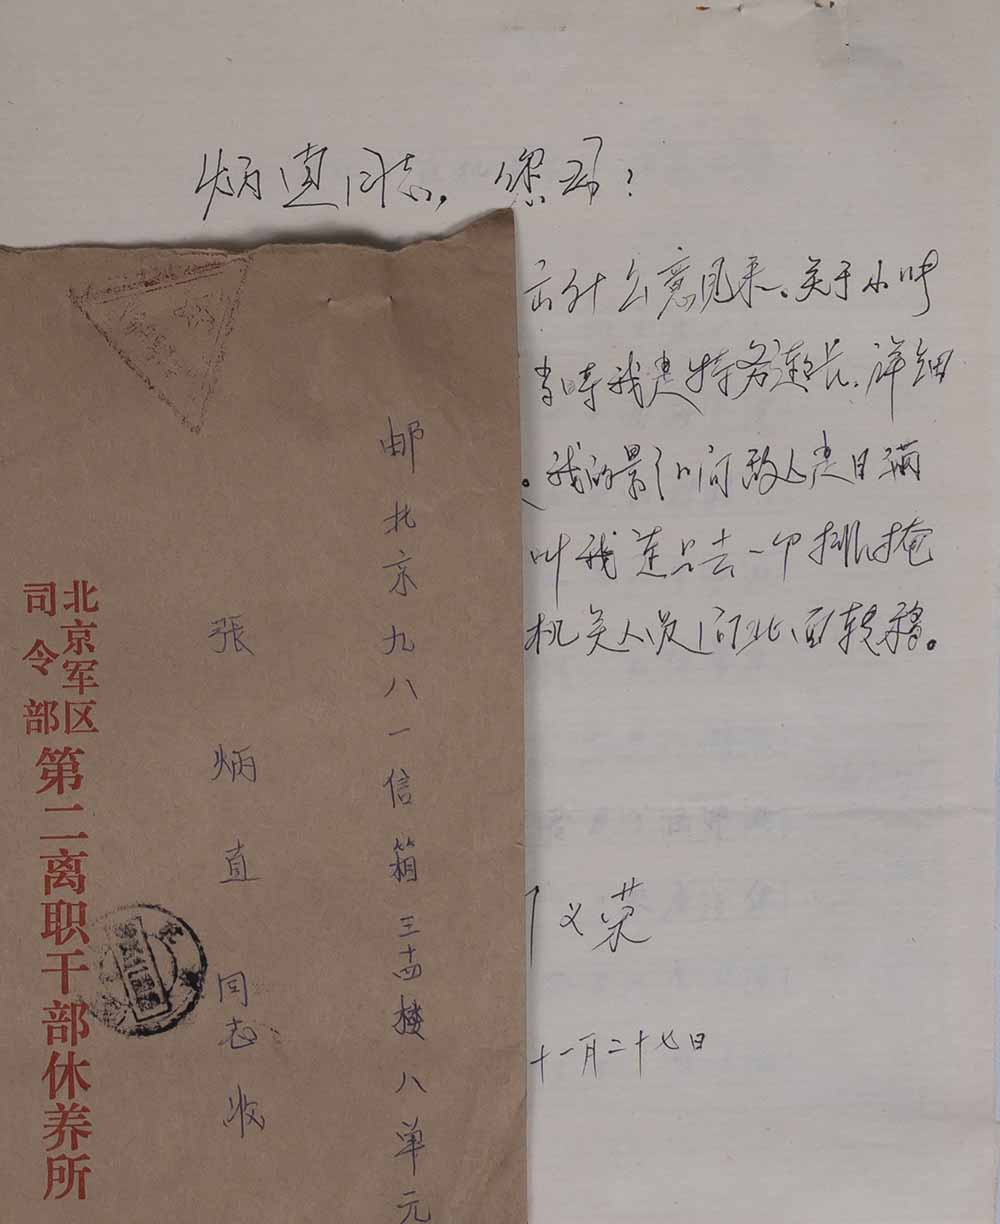 炳直同志，您好！
云什么意见来、关于小叶
当时我是特务连长、详细
。我的影响敌人是
叫我连只去一个排掩
机关人员向北面转移。
义荣
十一月二十七日
邮北京九八一信箱三十四楼八单元
張炳直同志收
北京军区
司令部
第二离职干部休养所